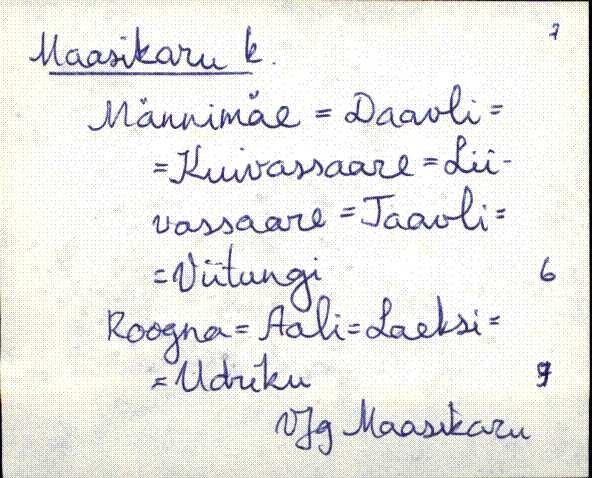 7
Maasikaru k.
Männimäe = Daavli =
= Kuivassaare = Lii-
vassaare = Taavli =
= Viitungi 6
Roogna = Aali = Laeksi =
= Udriku 9
VJg Maasikaru